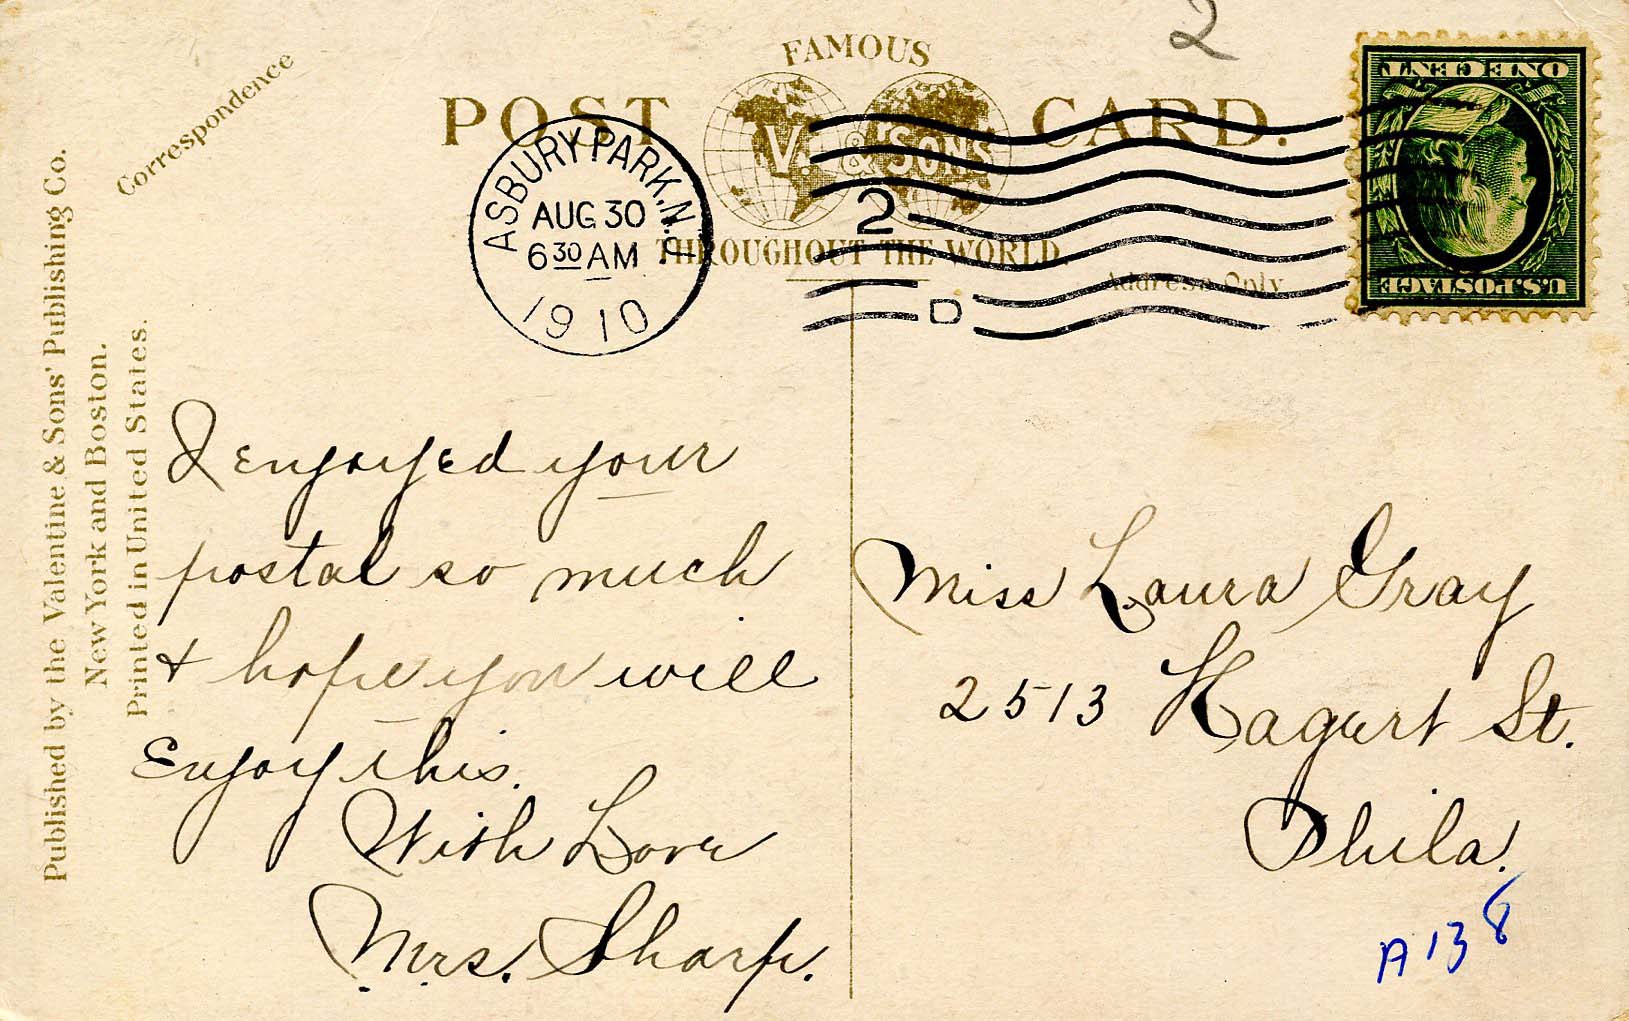 2
FAMOUS
POST CARD.
V. & SONS
THROUGHOUT THE WORLD.
Correspondence
Address Only
Published by the Valentine & Sons' Publishing Co.
New York and Boston.
Printed in United States.
ASBURY PARK, N.J.
AUG 30
6 30 AM
1910
2
D
ONE CENT
U.S. POSTAGE
I enjoyed your
postal so much
& hope you will
Enjoy this.
With Love
Mrs. Sharp.
Miss Laura Gray
2513 Hagert St.
Phila.
A138